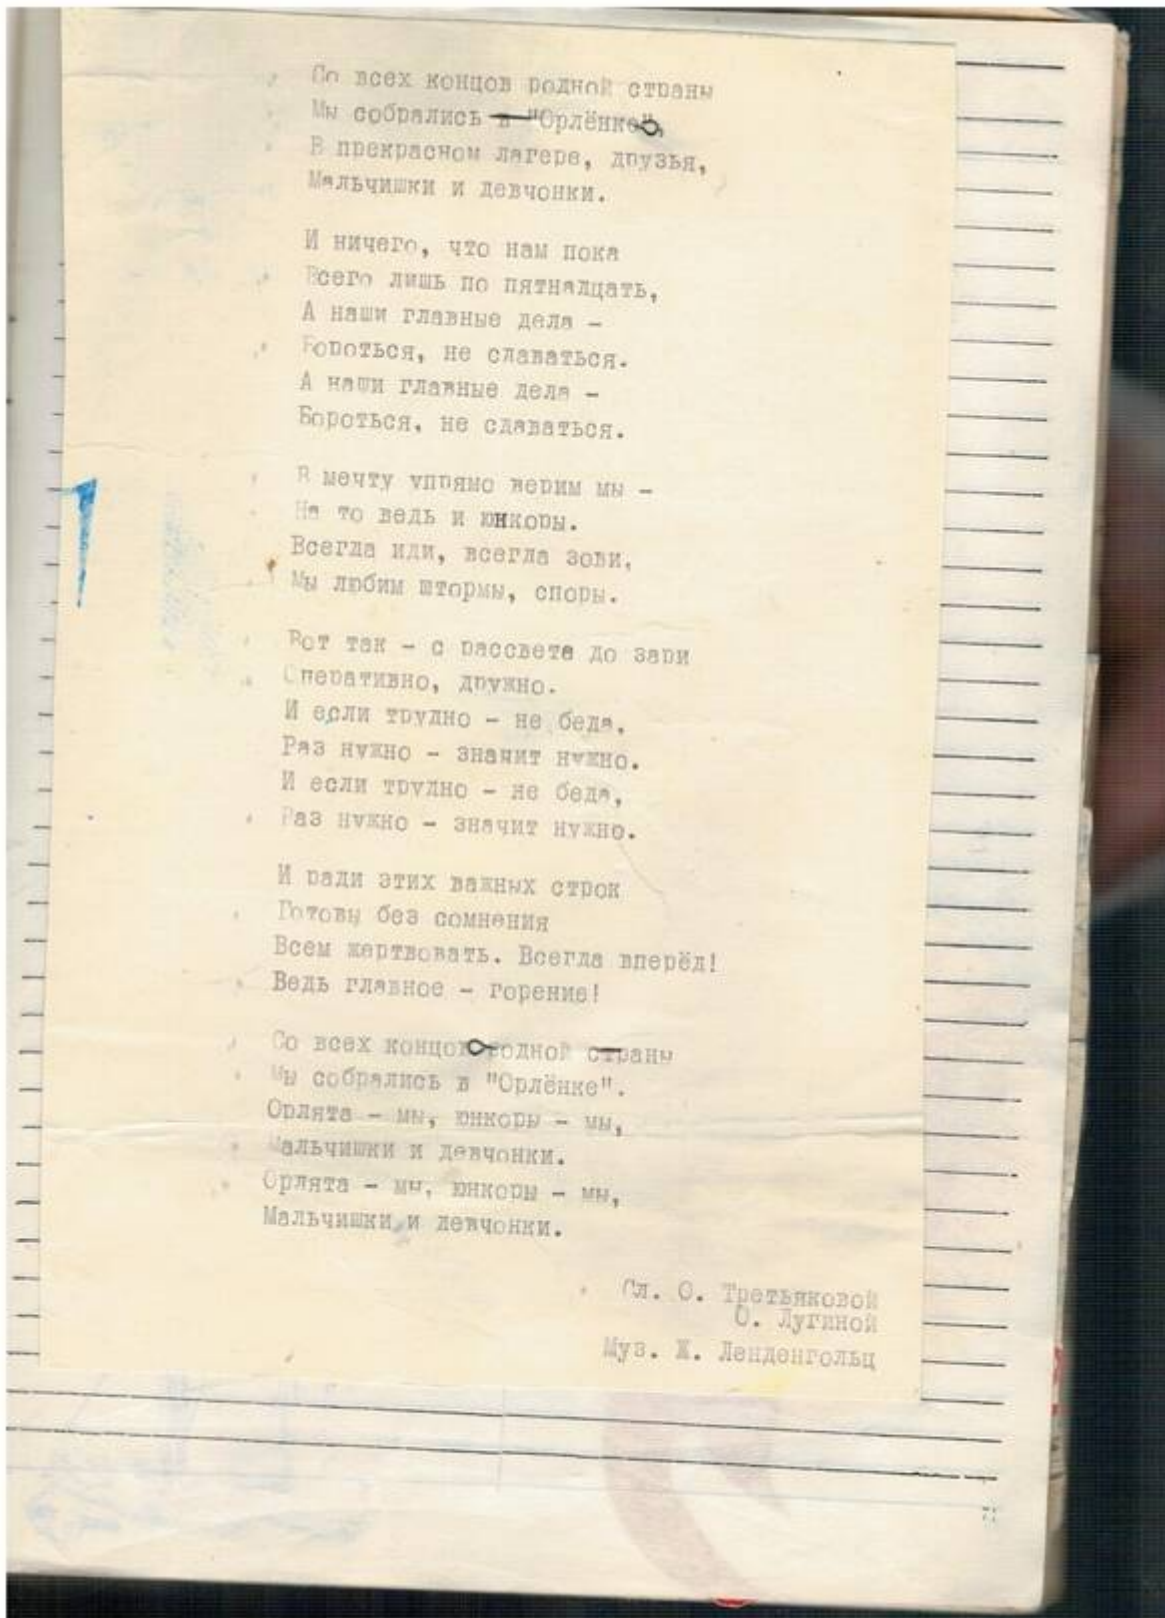 Со всех концов родной страны
Мы собрались в "Орлёнке",
В прекрасном лагере, друзья,
Мальчишки и девчонки.
И ничего, что нам пока
Всего лишь по пятнадцать,
А наши главные дела -
Бороться, не сдаваться.
А наши главные дела -
Бороться, не сдаваться.
В мечту упрямо верим мы -
На то ведь и юнкоры.
Всегда иди, всегда зови,
Мы любим штормы, споры.
Вот так - с рассвета до зари
Оперативно, дружно.
И если трудно - не беда,
Раз нужно - значит нужно.
И если трудно - не беда,
Раз нужно - значит нужно.
И ради этих важных строк
Готовы без сомнения
Всем жертвовать. Всегда вперёд!
Ведь главное - горение!
Со всех концов родной страны
Мы собрались в "Орлёнке".
Орлята - мы, юнкоры - мы,
Мальчишки и девчонки.
Орлята - мы, юнкоры - мы,
Мальчишки и девчонки.
Сл. О. Третьяковой
О. Лугиной
Муз. Ж. Ленденгольц